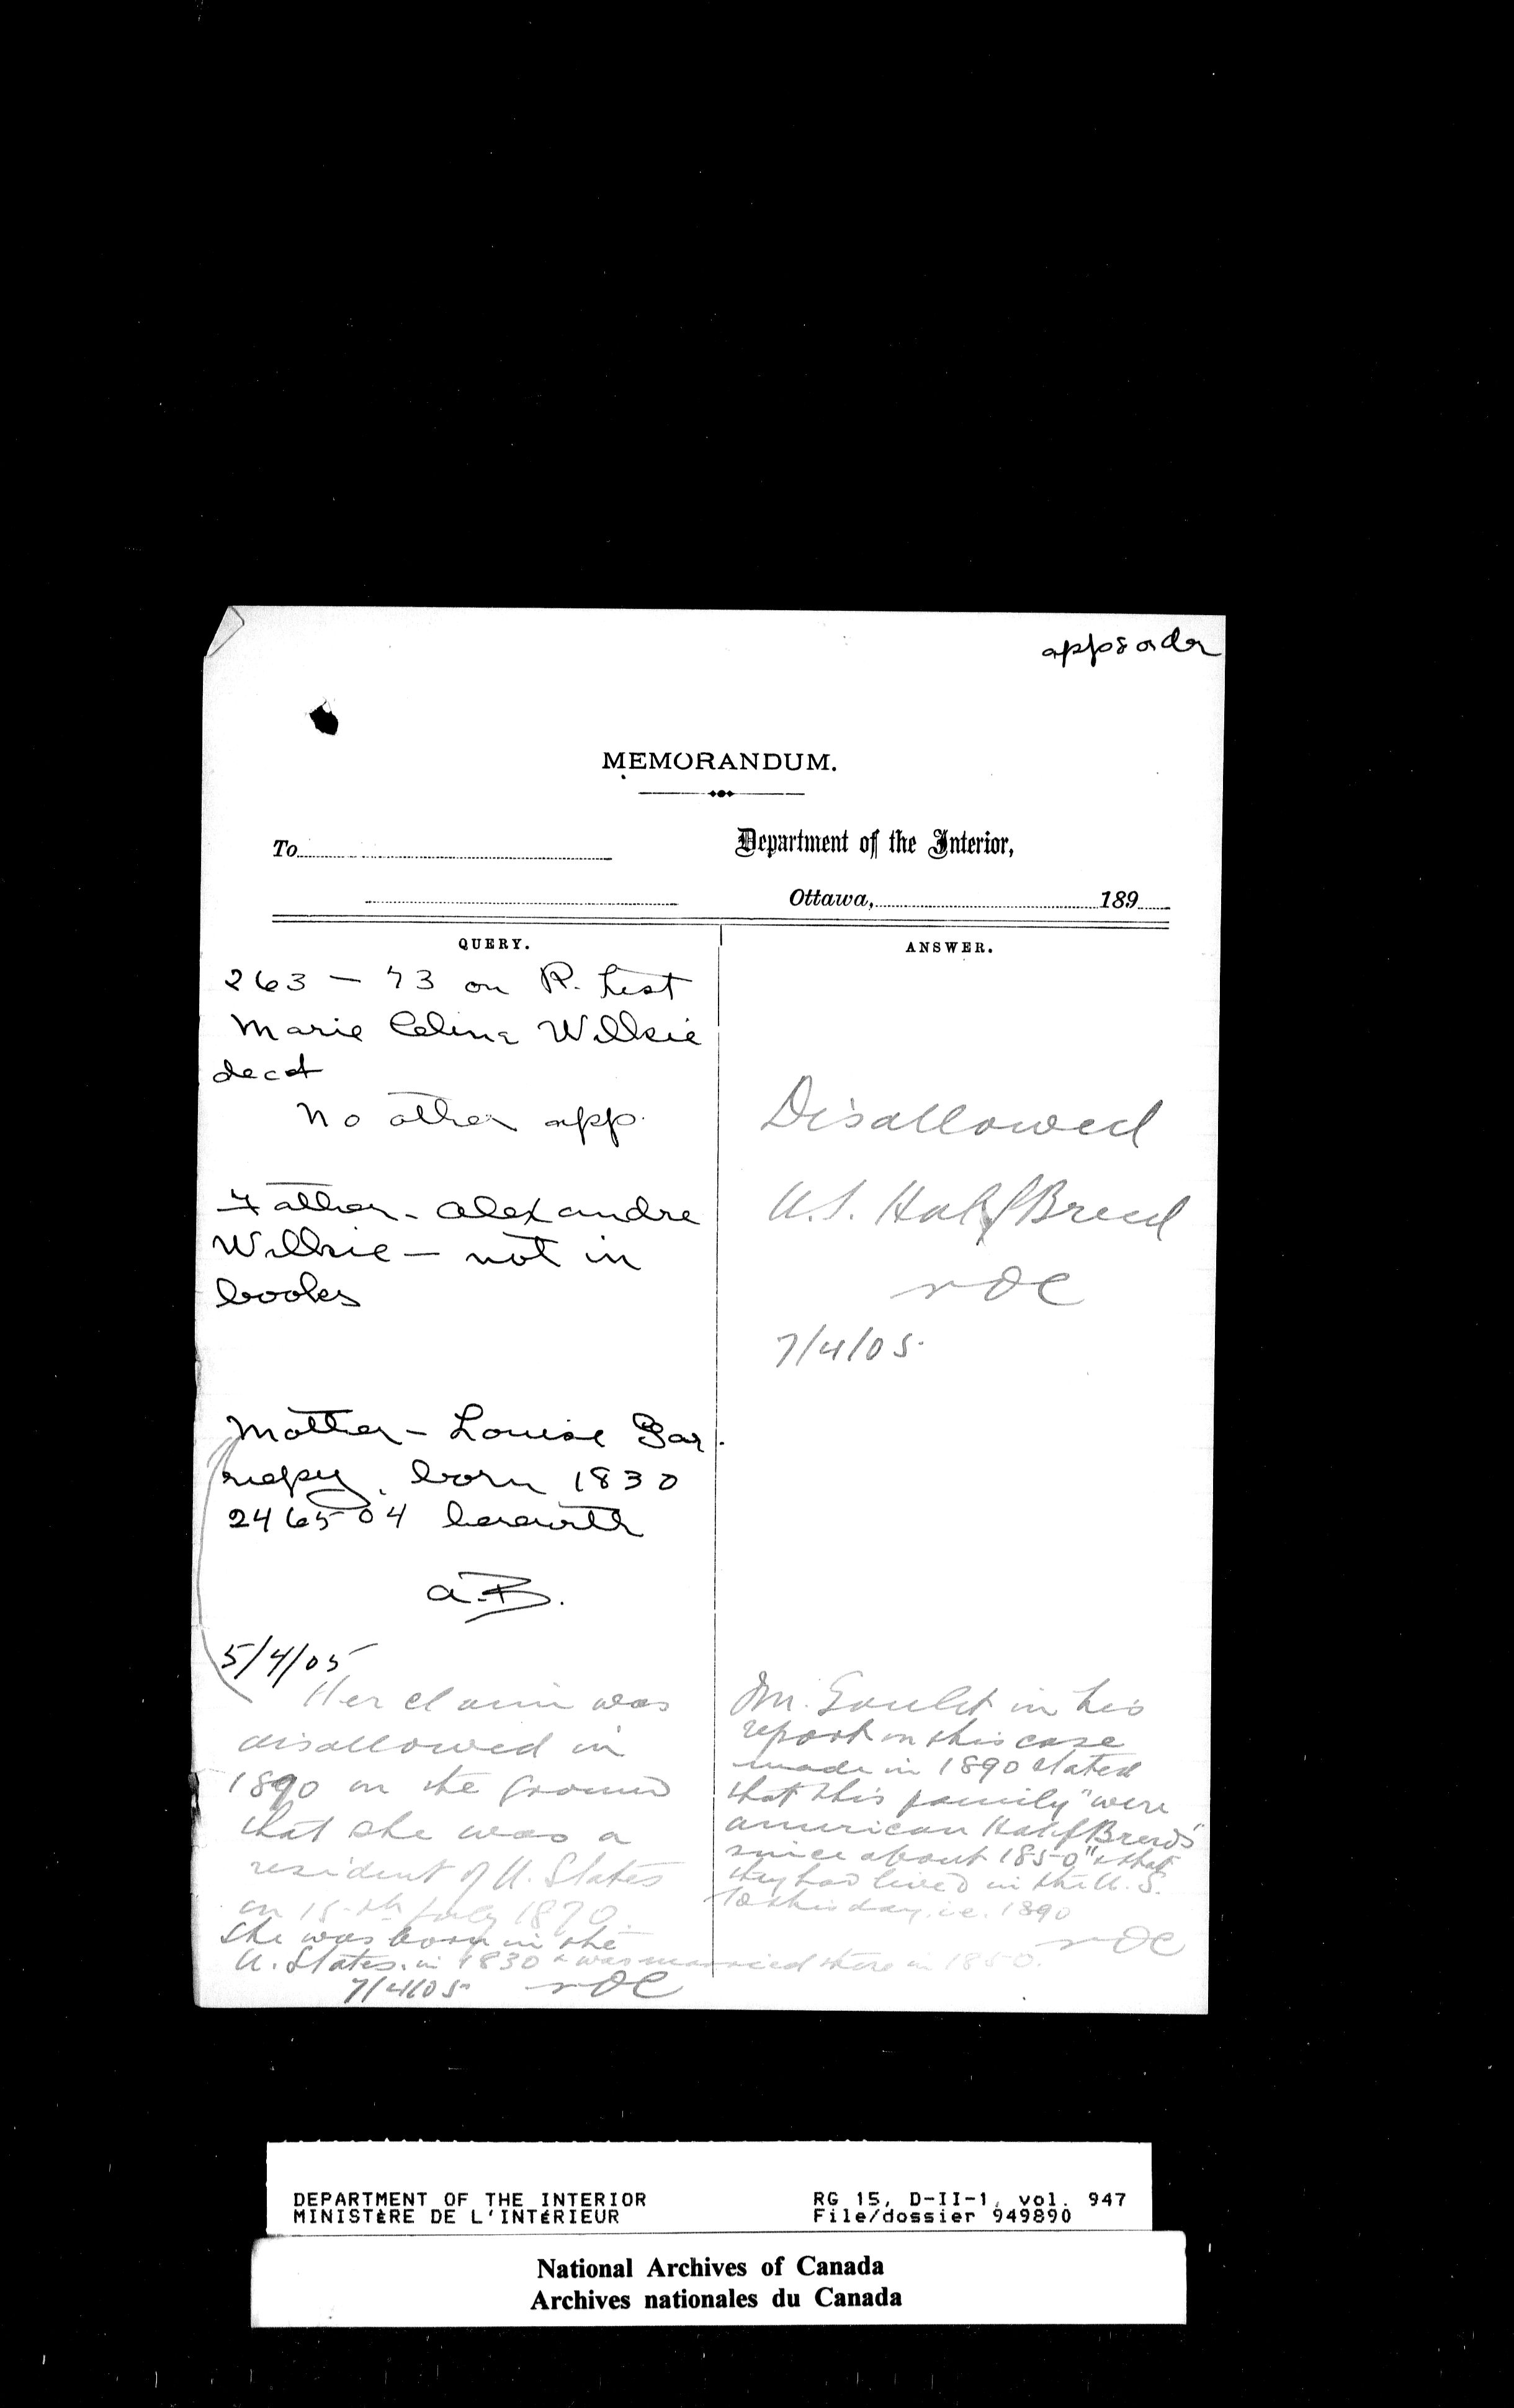 MEMORANDUM.
To
Department of the Interior,
Ottawa, 189
QUERY.
263 – 73 on R. List
Marie Celina Wilkie
decd
No other app.
Father – Alexandre
Wilkie – not in
books
Mother – Louise Gar
riepy. born 1830
246504 herewith
A.B.
5/4/05
Her claim was
disallowed in
1890 on the ground
that she was a
resident of U. States
on 15th July 1870.
She was born in the
U. States. in 1830 & was married there in 1850.
7/4/05 NOC
ANSWER.
Disallowed
U.S. Half Breed
NOC
7/4/05.
Mr. Goulet in his
report on this case
made in 1890 stated
that this family "were
American Half Breeds
since about 1850" & that
they had lived in the U.S.
to this day, i.e. 1890
NOC
DEPARTMENT OF THE INTERIOR
MINISTÈRE DE L'INTÉRIEUR
RG 15, D-II-1, vol. 947
File/dossier 949890
National Archives of Canada
Archives nationales du Canada